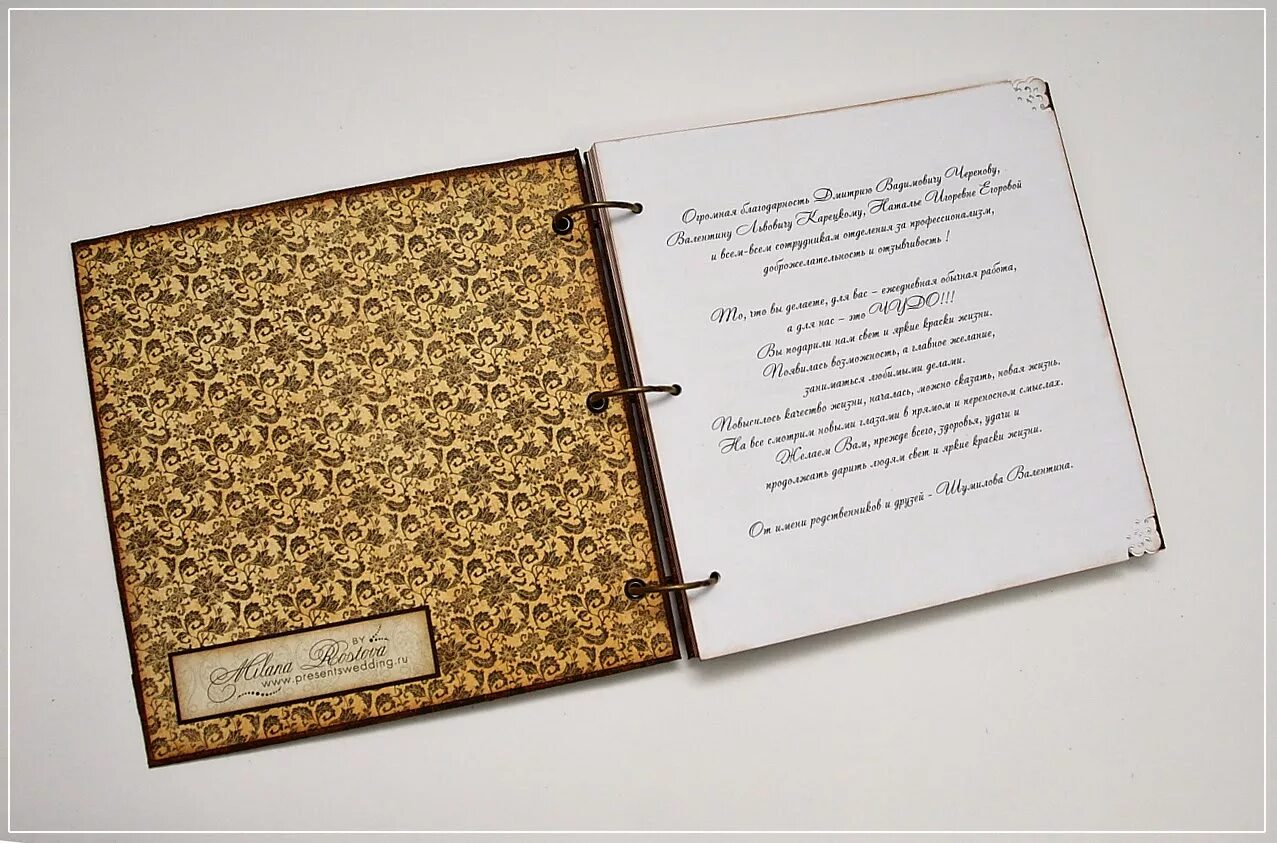 BY
Milana Rostova
www.presentswedding.ru
Огромная благодарность Дмитрию Вадимовичу Черепову,
Валентину Львовичу Карецкому, Наталье Игоревне Егоровой
и всем-всем сотрудникам отделения за профессионализм,
доброжелательность и отзывчивость !
То, что вы делаете, для вас – ежедневная обычная работа,
а для нас – это ЧУДО!!!
Вы подарили нам свет и яркие краски жизни.
Появилась возможность, а главное желание,
заниматься любимыми делами.
Повысилось качество жизни, началась, можно сказать, новая жизнь.
На все смотрим новыми глазами в прямом и переносном смыслах.
Желаем Вам, прежде всего, здоровья, удачи и
продолжать дарить людям свет и яркие краски жизни.
От имени родственников и друзей - Шумилова Валентина.